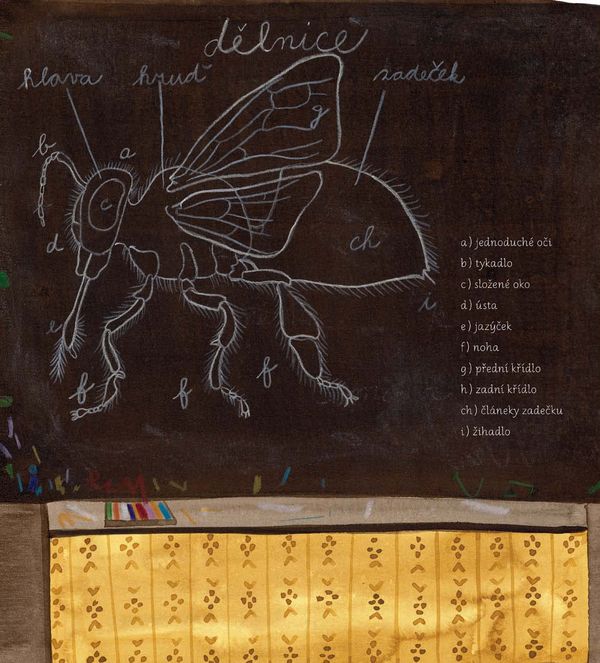 dělnice
hlava hruď zadeček
b
a
g
c
d
ch
i
e
f
f
f
a) jednoduché oči
b) tykadlo
c) složené oko
d) ústa
e) jazýček
f) noha
g) přední křídlo
h) zadní křídlo
ch) články zadečku
i) žihadlo